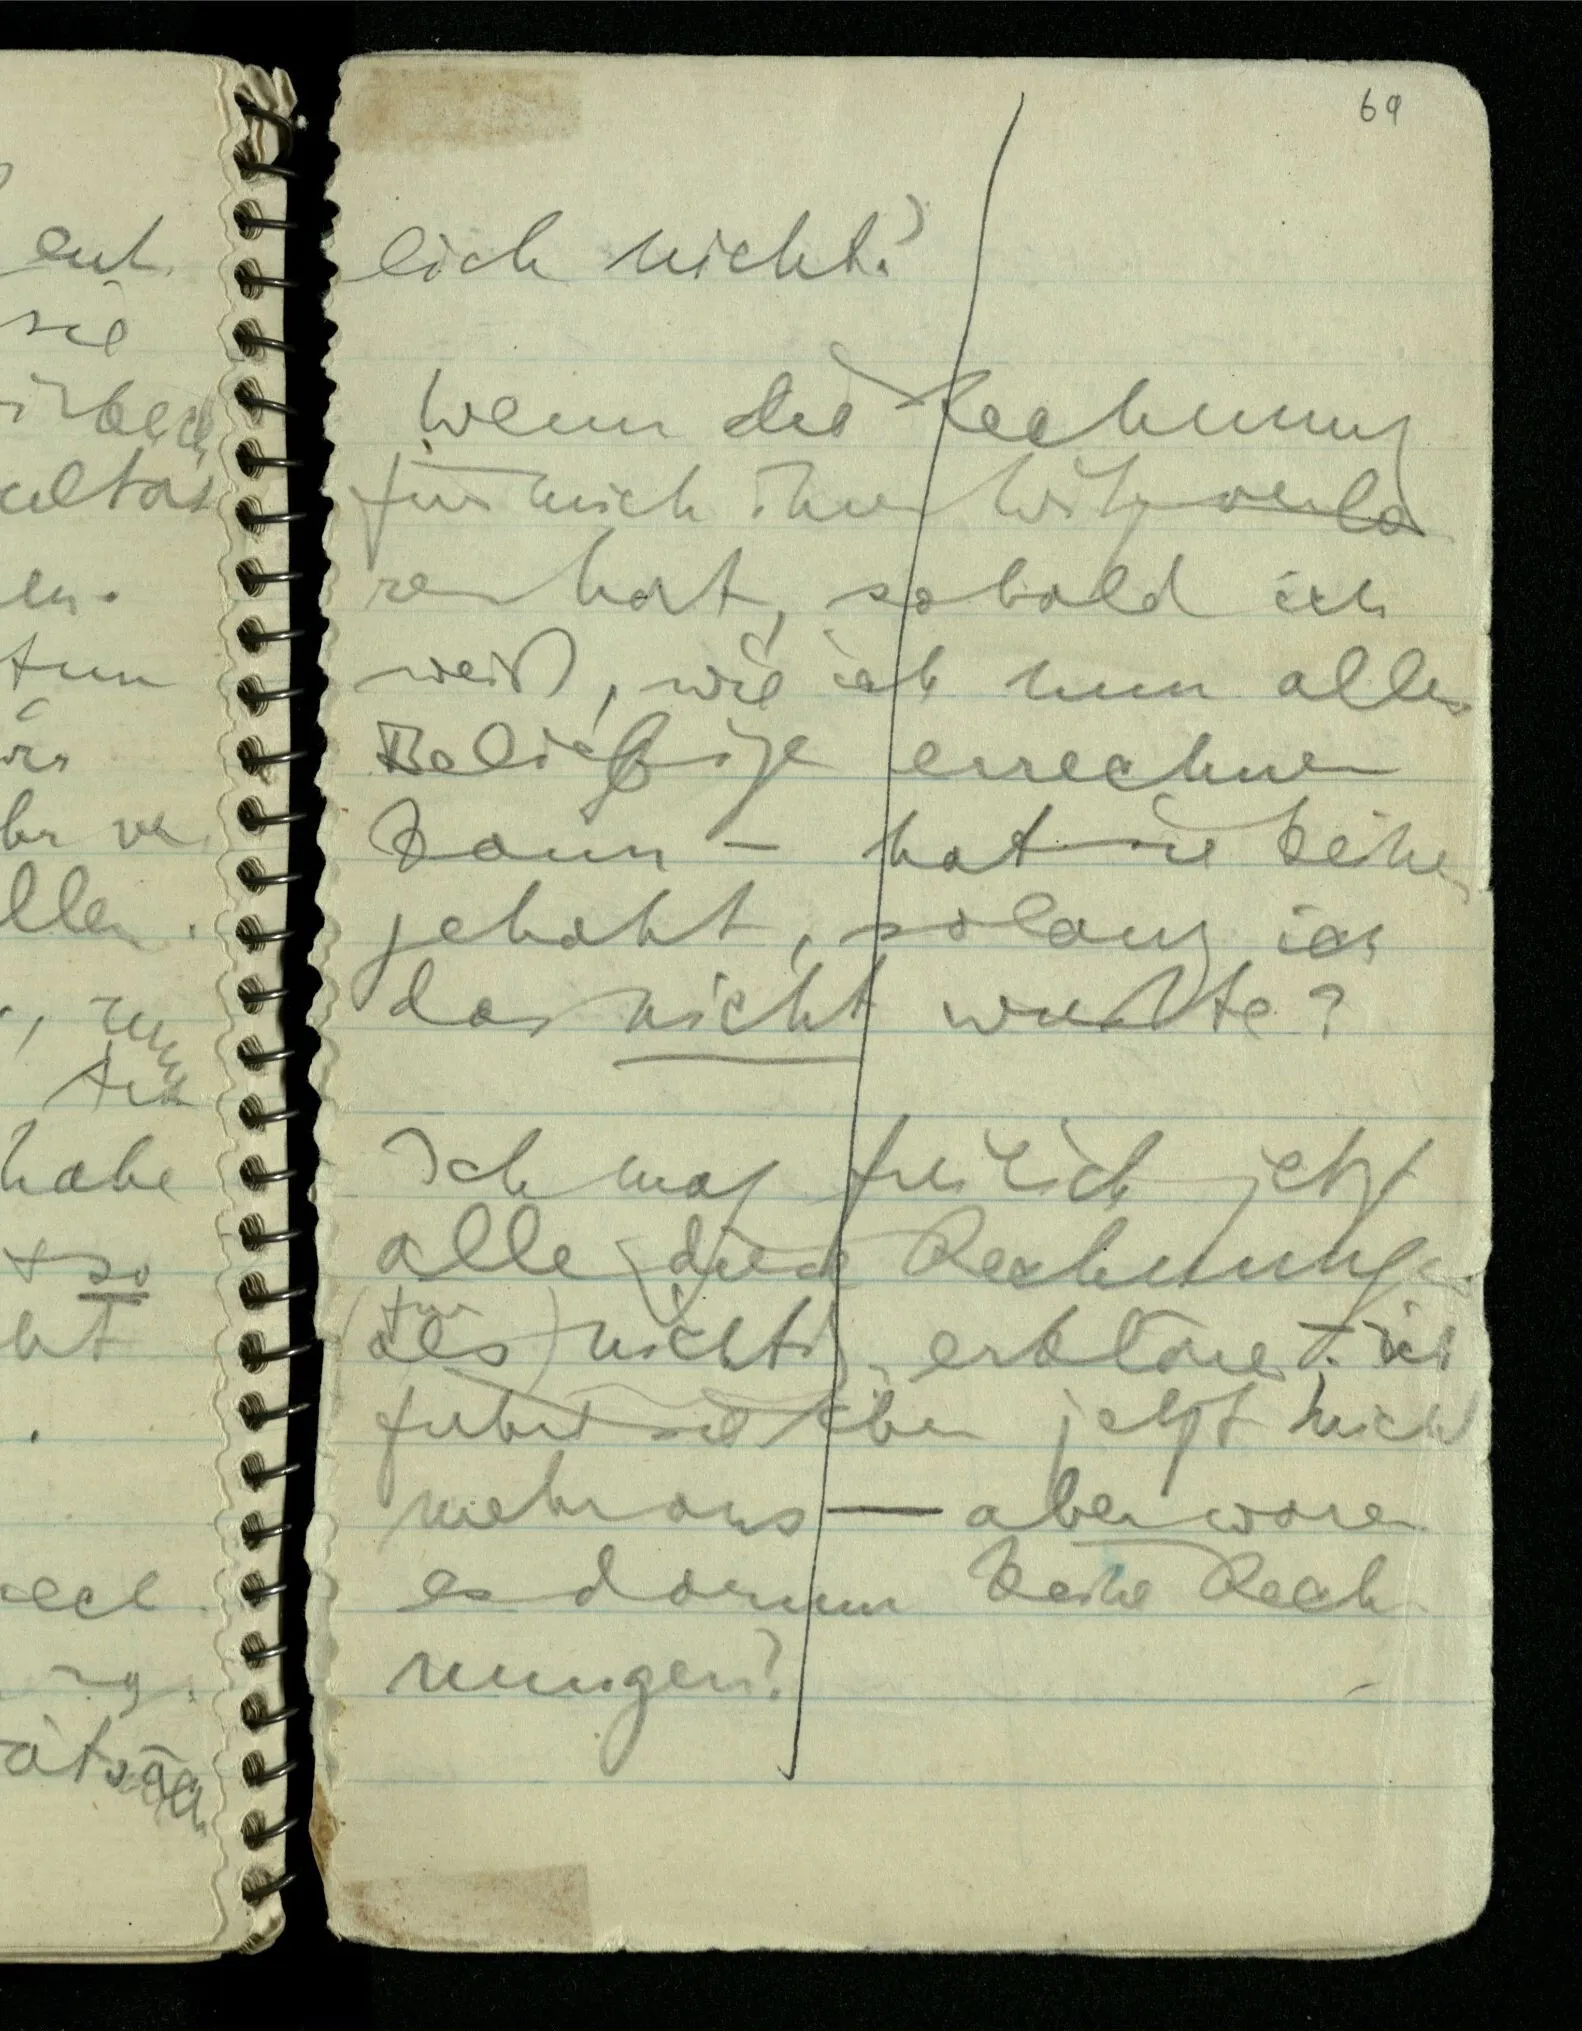 69
lich nicht?
Wenn die Rechnung
für mich ihren Witz verlo
ren hat, sobald ich
weiß, wie ich nun alles
Beliebige errechnen
kann – hat sie keinen
gehabt, solang ich
das nicht wußte?
Ich mag freilich jetzt
alle diese Rechnungen
für
als nichtig erklären – ich
führe sie eben jetzt nicht
mehr aus — aber waren
es darum keine Rech
nungen?
ent
sie
en.
tun
ver
llen.
habe
so